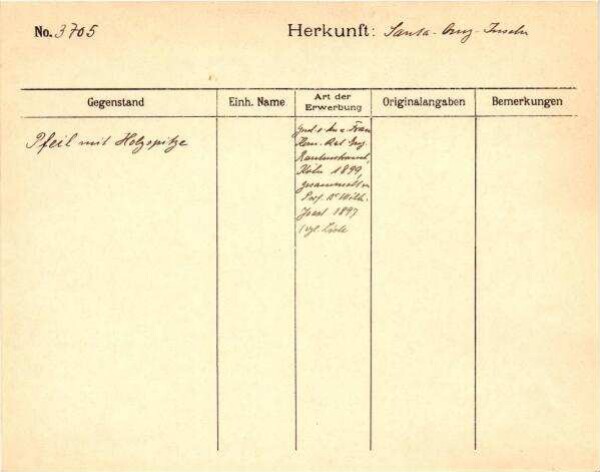 No. 3705
Herkunft: Santa-Cruz-Inseln
Gegenstand
Einh. Name
Art der
Erwerbung
Originalangaben
Bemerkungen
Pfeil mit Holzspitze
Frau
Rautenstrauch,
Köln 1899,
gesammelt v.
Prof. Dr Wilh.
Joest 1897
(vgl. Liste